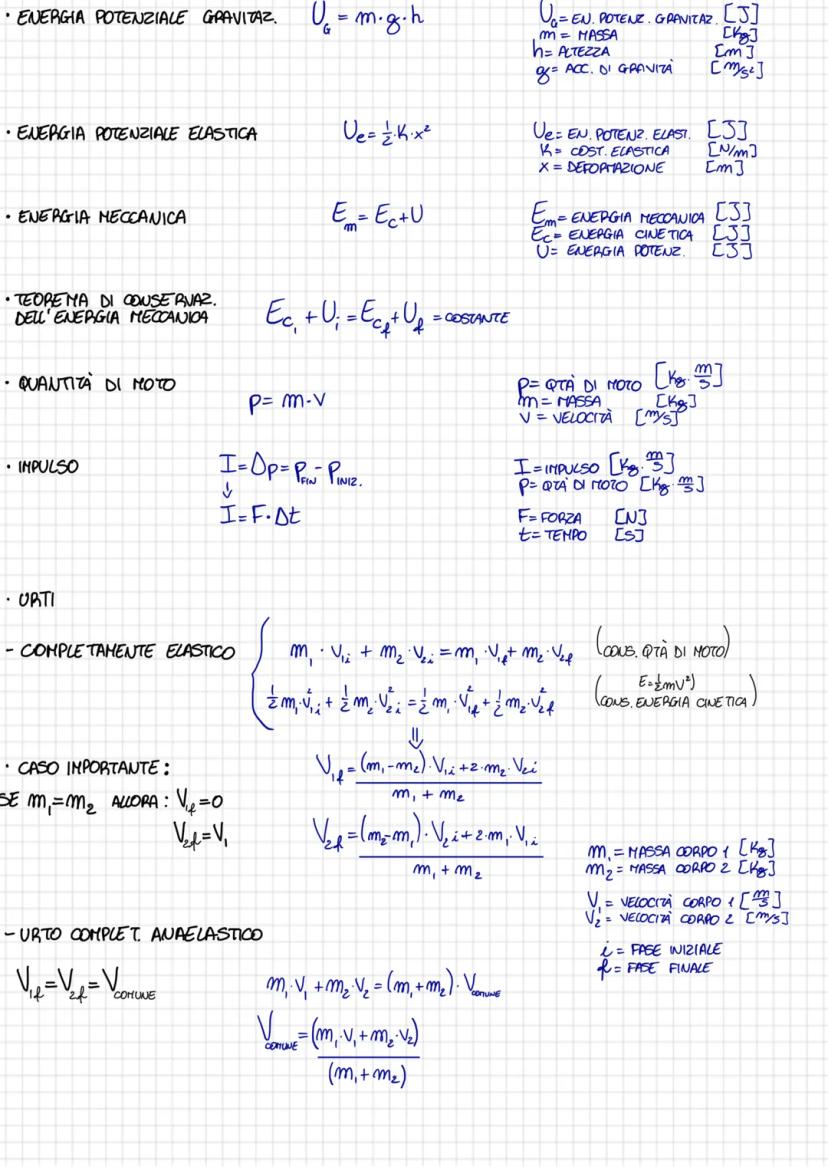 · ENERGIA POTENZIALE GRAVITAZ. U_G = m·g·h U_G = EN. POTENZ. GRAVITAZ. [J]
m = MASSA [Kg]
h = ALTEZZA [m]
g = ACC. DI GRAVITÀ [m/s²]
· ENERGIA POTENZIALE ELASTICA Ue = 1/2·K·x² Ue = EN. POTENZ. ELAST. [J]
K = COST. ELASTICA [N/m]
x = DEFORMAZIONE [m]
· ENERGIA MECCANICA E_m = E_c + U E_m = ENERGIA MECCANICA [J]
E_c = ENERGIA CINETICA [J]
U = ENERGIA POTENZ. [J]
· TEOREMA DI CONSERVAZ.
DELL'ENERGIA MECCANICA E_ci + U_i = E_cf + U_f = COSTANTE
· QUANTITÀ DI MOTO p = m·v p = QTÀ DI MOTO [Kg·m/s]
m = MASSA [Kg]
v = VELOCITÀ [m/s]
· IMPULSO I = Δp = P_FIN - P_INIZ. I = IMPULSO [Kg·m/s]
↓ P = QTÀ DI MOTO [Kg·m/s]
I = F·Δt F = FORZA [N]
t = TEMPO [s]
· URTI
- COMPLETAMENTE ELASTICO { m₁·V₁i + m₂·V₂i = m₁·V₁f + m₂·V₂f (CONS. QTÀ DI MOTO)
1/2 m₁·V₁i² + 1/2 m₂·V₂i² = 1/2 m₁·V₁f² + 1/2 m₂·V₂f² (E=1/2mV²)
(CONS. ENERGIA CINETICA)
⇓
· CASO IMPORTANTE: V₁f = (m₁-m₂)·V₁i+2·m₂·V₂i / m₁ + m₂
SE m₁=m₂ ALLORA: V₁f=0
V₂f=V₁ V₂f = (m₂-m₁)·V₂i+2·m₁·V₁i / m₁ + m₂
m₁ = MASSA CORPO 1 [Kg]
m₂ = MASSA CORPO 2 [Kg]
V₁ = VELOCITÀ CORPO 1 [m/s]
V₂ = VELOCITÀ CORPO 2 [m/s]
i = FASE INIZIALE
f = FASE FINALE
- URTO COMPLET. ANAELASTICO
V₁f = V₂f = V_COMUNE m₁·V₁ + m₂·V₂ = (m₁+m₂)·V_COMUNE
V_COMUNE = (m₁·V₁+m₂·V₂) / (m₁+m₂)